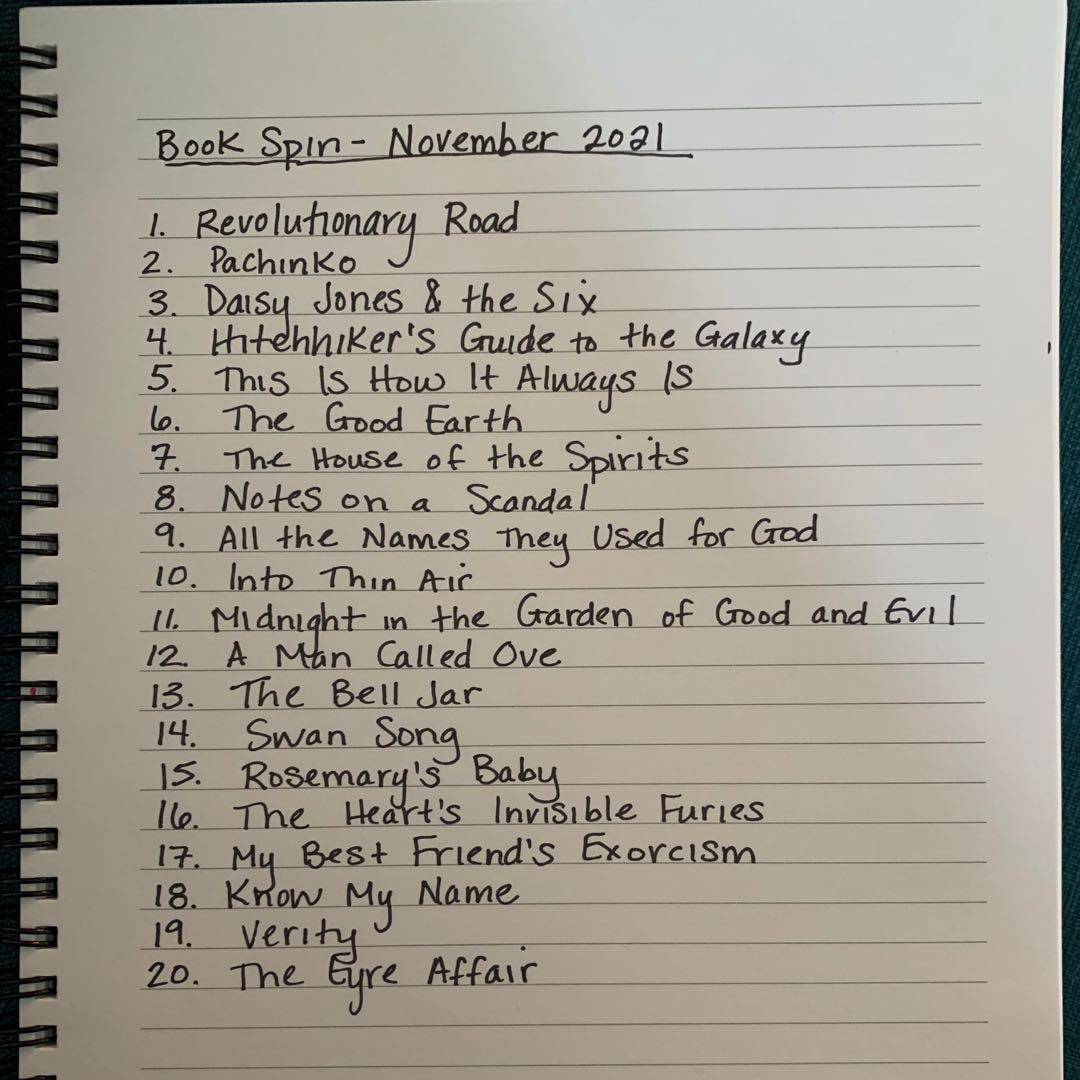 Book Spin - November 2021
1. Revolutionary Road
2. Pachinko
3. Daisy Jones & the Six
4. Hitchhiker's Guide to the Galaxy
5. This Is How It Always Is
6. The Good Earth
7. The House of the Spirits
8. Notes on a Scandal
9. All the Names They Used for God
10. Into Thin Air
11. Midnight in the Garden of Good and Evil
12. A Man Called Ove
13. The Bell Jar
14. Swan Song
15. Rosemary's Baby
16. The Heart's Invisible Furies
17. My Best Friend's Exorcism
18. Know My Name
19. Verity
20. The Eyre Affair